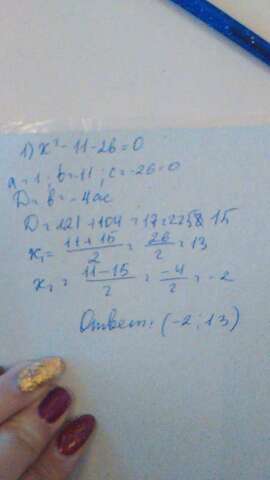 1) x² - 11 - 26 = 0
a = 1; b = 11; c = -26 = 0
D = b² - 4ac
D = 121 + 104 = 225 15
x₁ = (11+15)/2 = 26/2 = 13
x₂ = (11-15)/2 = -4/2 = -2
Ответ: (-2; 13)